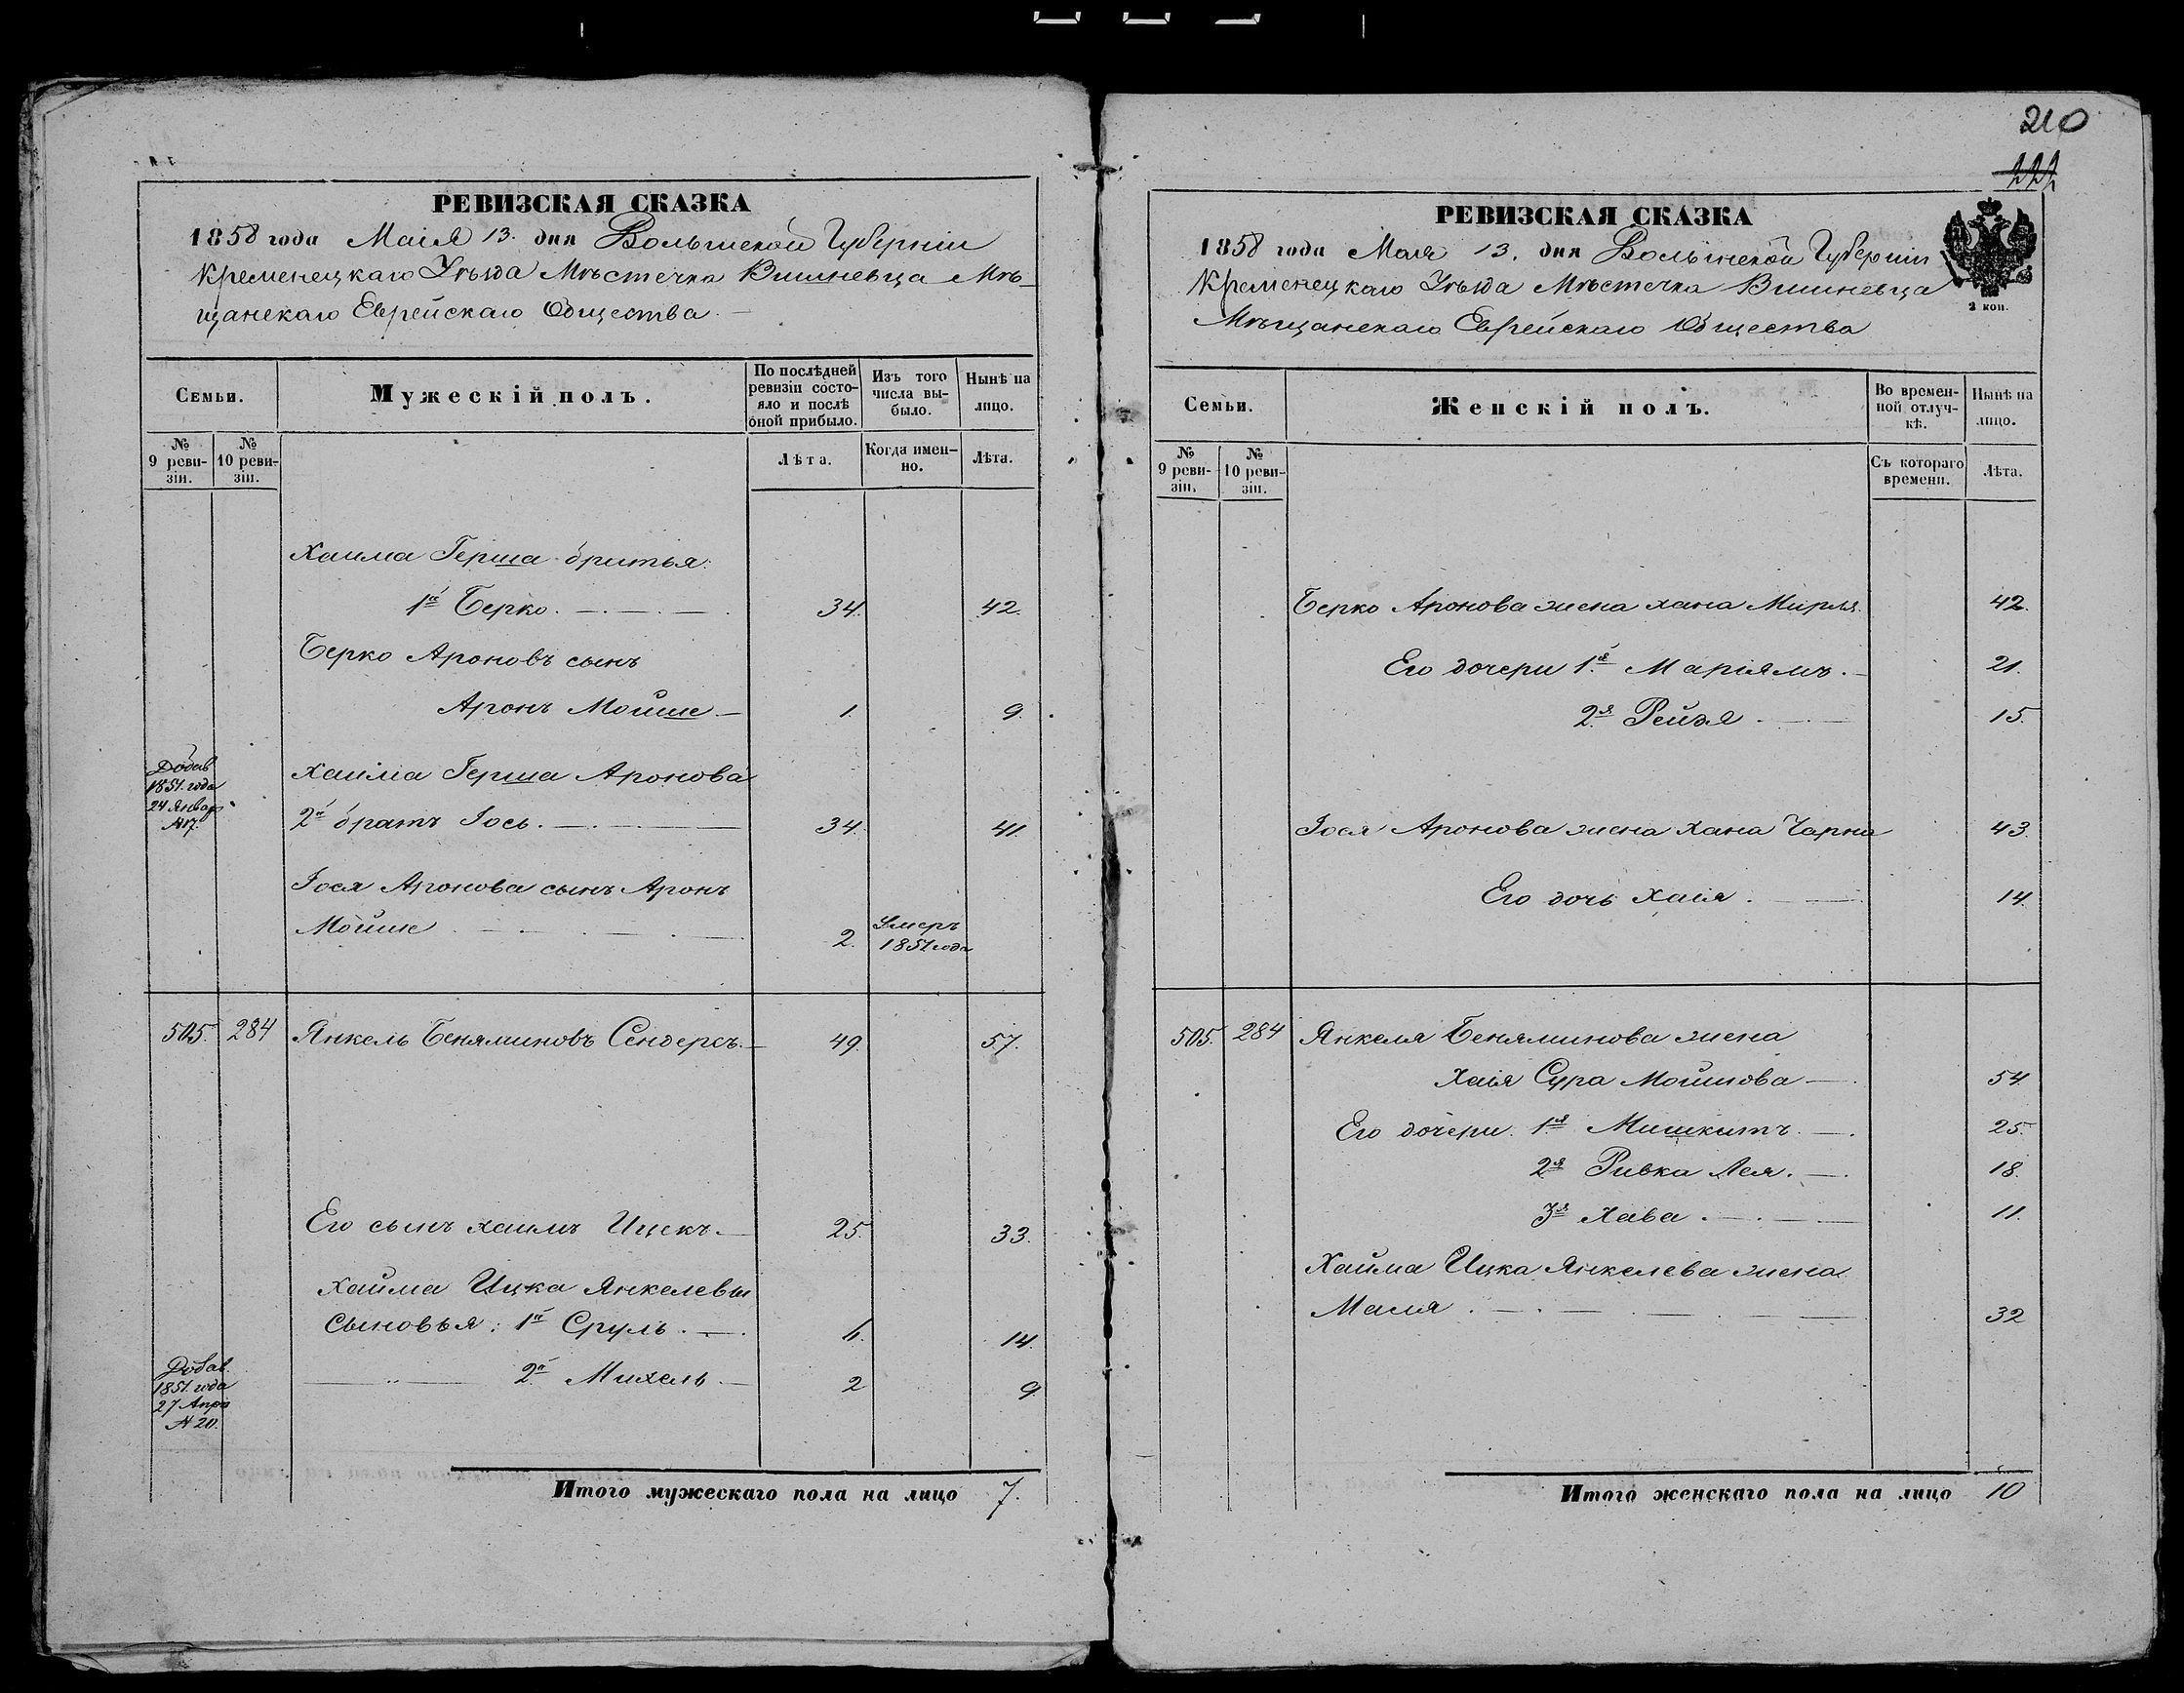 РЕВИЗСКАЯ СКАЗКА
1858 года Маія 13. дня Волынской Губерніи
Кременецкаго Уѣзда Мѣстечка Вишневца Мѣ-
щанскаго Еврейскаго Общества.
Семьи.
Мужескій полъ.
По послѣдней ревизіи состо-
яло и послѣ
оной прибыло.
Изъ того
числа вы-
было.
Нынѣ на
лицо.
№
9 реви-
зіи.
№
10 реви-
зіи.
Лѣта.
Когда имен-
но.
Лѣта.
Хаима Герша братья:
1й Берко. 34. 42.
Берко Ароновъ сынъ
Аронъ Мойше 1. 9.
Добав
1851 года
24 Январ
№17.
Хаима Герша Аронова
2й братъ Іось. 34. 41.
Іося Аронова сынъ Аронъ
Мойше 2. Умеръ
1851 года
505. 284 Янкель Беняминовъ Сендерсъ. 49. 57.
Его сынъ Хаимъ Ицекъ. 25. 33.
Хаима Ицка Янкелевы
Сыновья: 1й Сруль. 6. 14.
Добав.
1851 года
27 Апрѣ
№20.
2й Михель. 2 9.
Итого мужескаго пола на лицо 7.
210
222
РЕВИЗСКАЯ СКАЗКА
2 коп.
1858 года Маія 13. дня Волынской Губерніи
Кременецкаго Уѣзда Мѣстечка Вишневца
Мѣщанскаго Еврейскаго Общества
Семьи.
Женскій полъ.
Во времен-
ной отлуч-
кѣ.
Нынѣ на
лицо.
№
9 реви-
зіи.
№
10 реви-
зіи.
Съ котораго
времени.
Лѣта.
Берко Аронова жена Хана Мирля. 42.
Его дочери 1я Маріямъ. 21.
2я Рейзя 15.
Іося Аронова жена Хана Чарна 43.
Его дочь Хаія. 14.
505. 284 Янкеля Беняминова жена
Хаія Сура Мошкова 54
Его дочери. 1я Мишкитъ. 25.
2я Ривка Лея. 18.
3я Хава. 11.
Хаима Ицка Янкелева жена
Маля. 32
Итого женскаго пола на лицо 10